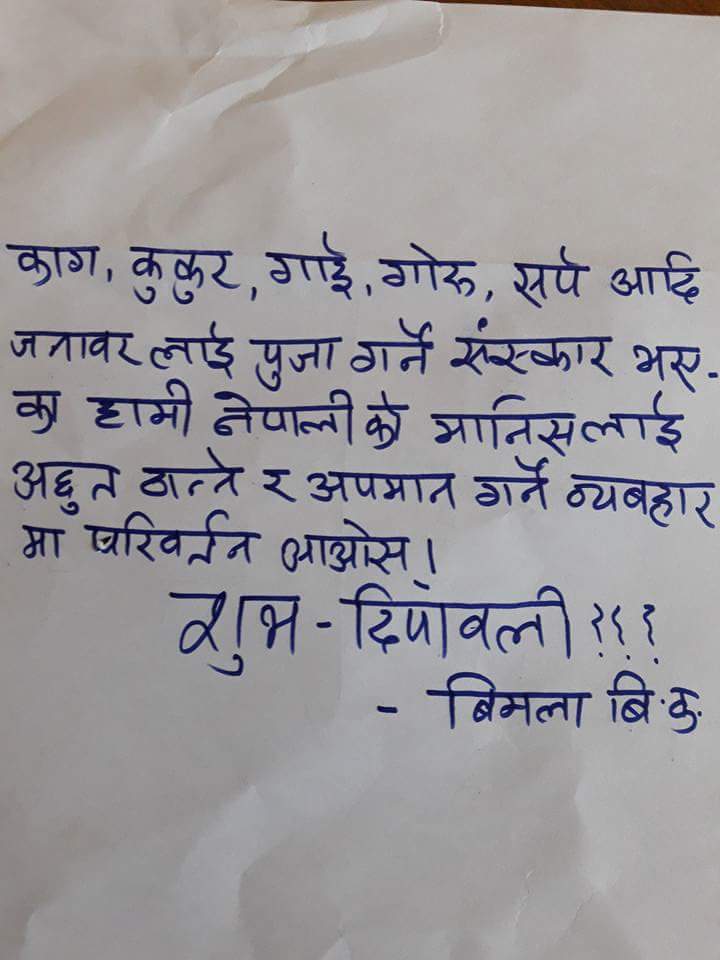 काग, कुकुर, गाई, गोरु, सर्प आदि
जनावर लाई पुजा गर्ने संस्कार भए-
का हामी नेपाली को मानिसलाई
अछुत ठान्ने र अपमान गर्ने व्यबहार
मा परिवर्तन आओस्!
शुभ - दिपावली ???
- बिमला बि.क.